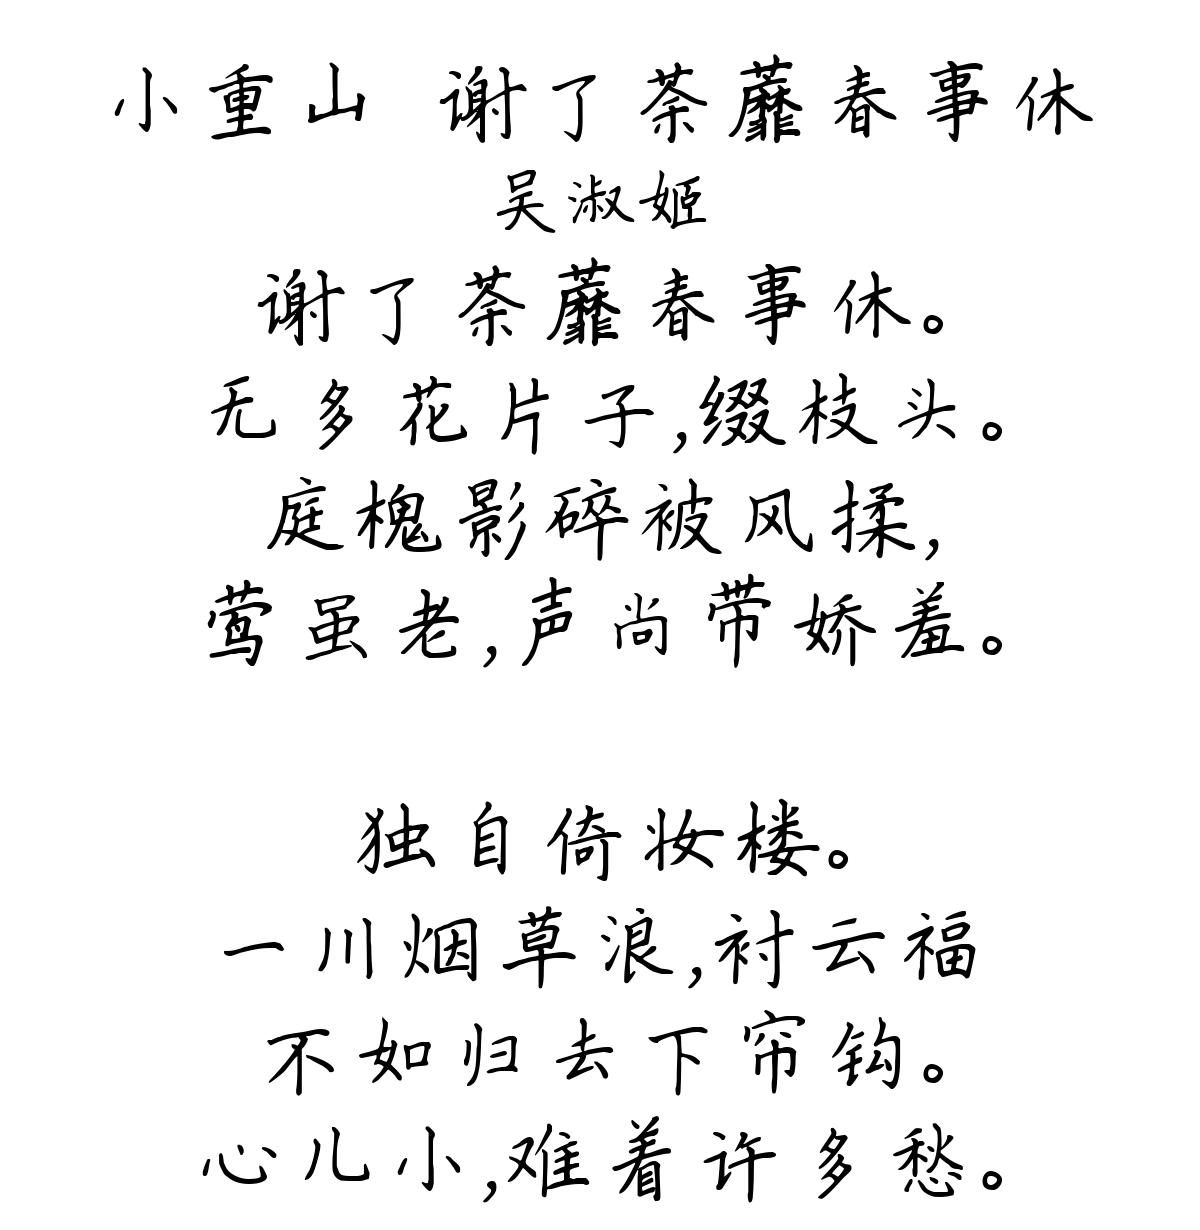 小重山 谢了荼蘼春事休
吴淑姬
谢了荼蘼春事休。
无多花片子,缀枝头。
庭槐影碎被风揉,
莺虽老,声尚带娇羞。
独自倚妆楼。
一川烟草浪,衬云福
不如归去下帘钩。
心儿小,难着许多愁。